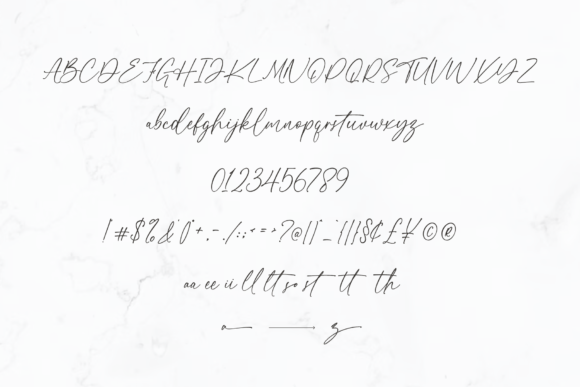 ABCDEFGHIJKLMNOPQRSTUVWXYZ
abcdefghijklmnopqrstuvwxyz
0123456789
! # $ % & ' () * + , - . / : ; < = > ? @ [ ] ^ _ ` { | } § ¢ £ ¥ © ®
aa ee ii ll lt so st tt th
a g